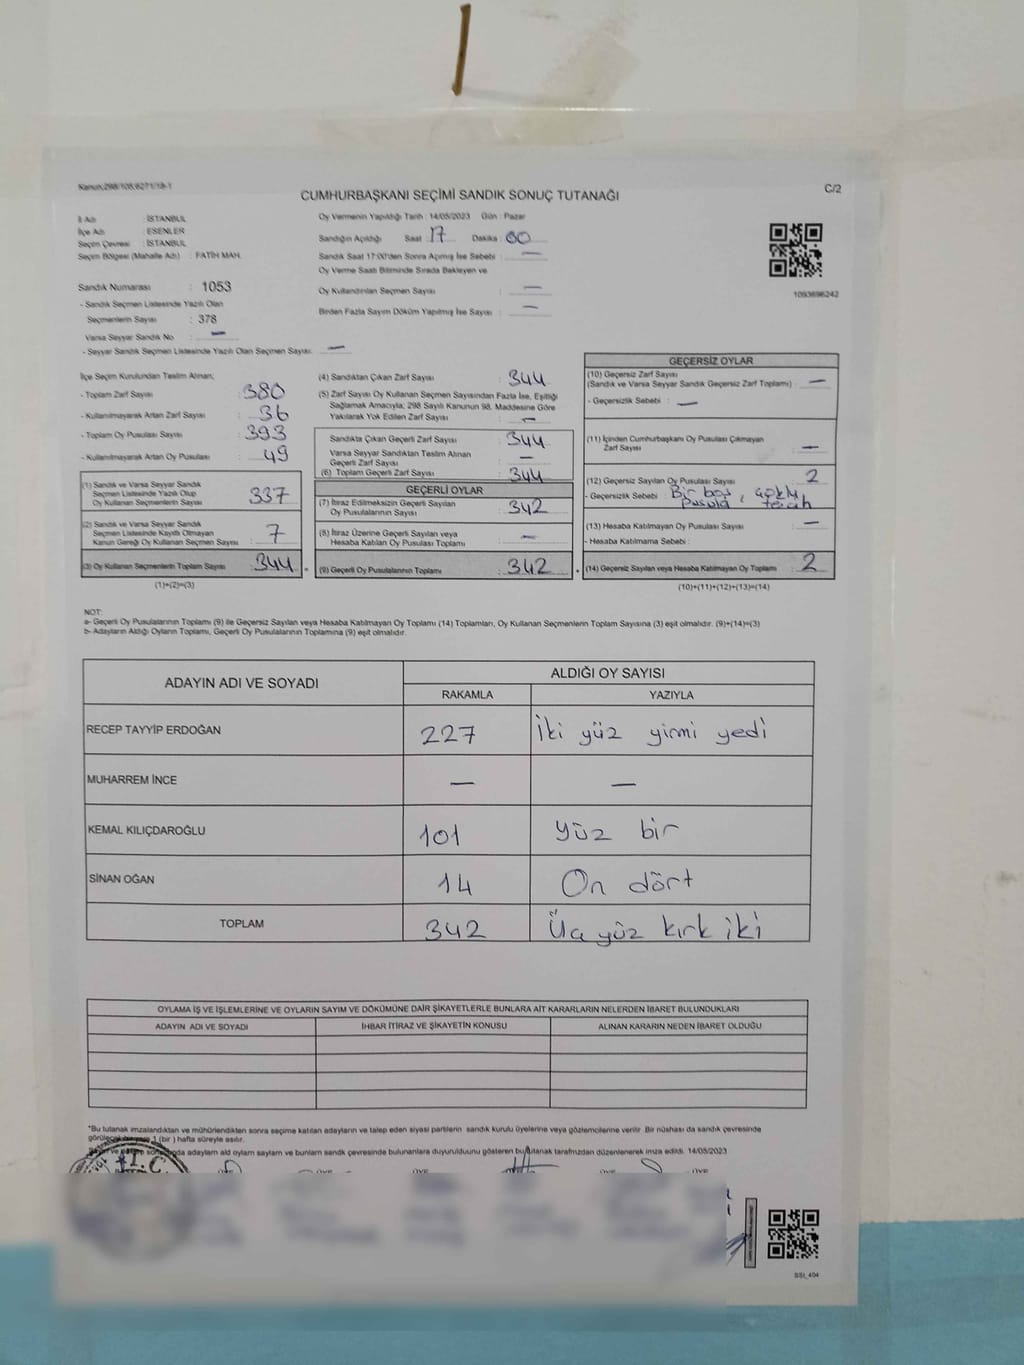 Kanun:298/105,6271/18-1
CUMHURBAŞKANI SEÇİMİ SANDIK SONUÇ TUTANAĞI
C/2
İl Adı : İSTANBUL
İlçe Adı : ESENLER
Seçim Çevresi : İSTANBUL
Seçim Bölgesi (Mahalle Adı) : FATİH MAH.
Sandık Numarası : 1053
- Sandık Seçmen Listesinde Yazılı Olan
Seçmenlerin Sayısı : 378
Varsa Seyyar Sandık No : —
- Seyyar Sandık Seçmen Listesinde Yazılı Olan Seçmen Sayısı: —
Oy Vermenin Yapıldığı Tarih : 14/05/2023 Gün : Pazar
Sandığın Açıldığı Saat : 17 Dakika : 00
Sandık Saat 17:00'den Sonra Açılmış İse Sebebi : —
Oy Verme Saati Bitiminde Sırada Bekleyen ve
Oy Kullandırılan Seçmen Sayısı : —
Birden Fazla Sayım Döküm Yapılmış İse Sayısı : —
1093696242
İlçe Seçim Kurulundan Teslim Alınan;
- Toplam Zarf Sayısı : 380
- Kullanılmayarak Artan Zarf Sayısı : 36
- Toplam Oy Pusulası Sayısı : 393
- Kullanılmayarak Artan Oy Pusulası : 49
(1) Sandık ve Varsa Seyyar Sandık
Seçmen Listesinde Yazılı Olup
Oy Kullanan Seçmenlerin Sayısı : 337
(2) Sandık ve Varsa Seyyar Sandık
Seçmen Listesinde Kayıtlı Olmayan
Kanun Gereği Oy Kullanan Seçmen Sayısı : 7
(3) Oy Kullanan Seçmenlerin Toplam Sayısı : 344
(1)+(2)=(3)
(4) Sandıktan Çıkan Zarf Sayısı : 344
(5) Zarf Sayısı Oy Kullanan Seçmen Sayısından Fazla İse, Eşitliği
Sağlamak Amacıyla; 298 Sayılı Kanunun 98. Maddesine Göre
Yakılarak Yok Edilen Zarf Sayısı : —
Sandıkta Çıkan Geçerli Zarf Sayısı : 344
Varsa Seyyar Sandıktan Teslim Alınan
Geçerli Zarf Sayısı : —
(6) Toplam Geçerli Zarf Sayısı : 344
GEÇERLİ OYLAR
(7) İtiraz Edilmeksizin Geçerli Sayılan
Oy Pusulalarının Sayısı : 342
(8) İtiraz Üzerine Geçerli Sayılan veya
Hesaba Katılan Oy Pusulası Toplamı : —
(9) Geçerli Oy Pusulalarının Toplamı : 342
GEÇERSİZ OYLAR
(10) Geçersiz Zarf Sayısı
(Sandık ve Varsa Seyyar Sandık Geçersiz Zarf Toplamı) : —
- Geçersizlik Sebebi : —
(11) İçinden Cumhurbaşkanı Oy Pusulası Çıkmayan
Zarf Sayısı : —
(12) Geçersiz Sayılan Oy Pusulası Sayısı : 2
- Geçersizlik Sebebi : Bir boş pusula, çoklu tercih
(13) Hesaba Katılmayan Oy Pusulası Sayısı : —
- Hesaba Katılmama Sebebi :
(14) Geçersiz Sayılan veya Hesaba Katılmayan Oy Toplamı : 2
(10)+(11)+(12)+(13)=(14)
NOT:
a- Geçerli Oy Pusulalarının Toplamı (9) ile Geçersiz Sayılan veya Hesaba Katılmayan Oy Toplamı (14) Toplamları, Oy Kullanan Seçmenlerin Toplam Sayısına (3) eşit olmalıdır. (9)+(14)=(3)
b- Adayların Aldığı Oyların Toplamı, Geçerli Oy Pusulalarının Toplamına (9) eşit olmalıdır.
ADAYIN ADI VE SOYADI
ALDIĞI OY SAYISI
RAKAMLA YAZIYLA
RECEP TAYYİP ERDOĞAN 227 İki yüz yirmi yedi
MUHARREM İNCE — —
KEMAL KILIÇDAROĞLU 101 yüz bir
SİNAN OĞAN 14 On dört
TOPLAM 342 Üç yüz kırk iki
OYLAMA İŞ VE İŞLEMLERİNE VE OYLARIN SAYIM VE DÖKÜMÜNE DAİR ŞİKAYETLERLE BUNLARA AİT KARARLARIN NELERDEN İBARET BULUNDUKLARI
ADAYIN ADI VE SOYADI İHBAR İTİRAZ VE ŞİKAYETİN KONUSU ALINAN KARARIN NEDEN İBARET OLDUĞU
*Bu tutanak imzalandıktan ve mühürlendikten sonra seçime katılan adayların ve talep eden siyasi partilerin sandık kurulu üyelerine veya gözlemcilerine verilir. Bir nüshası da sandık çevresinde
1 (bir) hafta süreyle asılır.
adayların ad oylarn saylarn ve bunların sandık çevresinde bulunanlara duyurulduunu gösteren bu tutanak tarafmzdan düzenlenerek imza edildi. 14/05/2023
T.C.
SSI_404